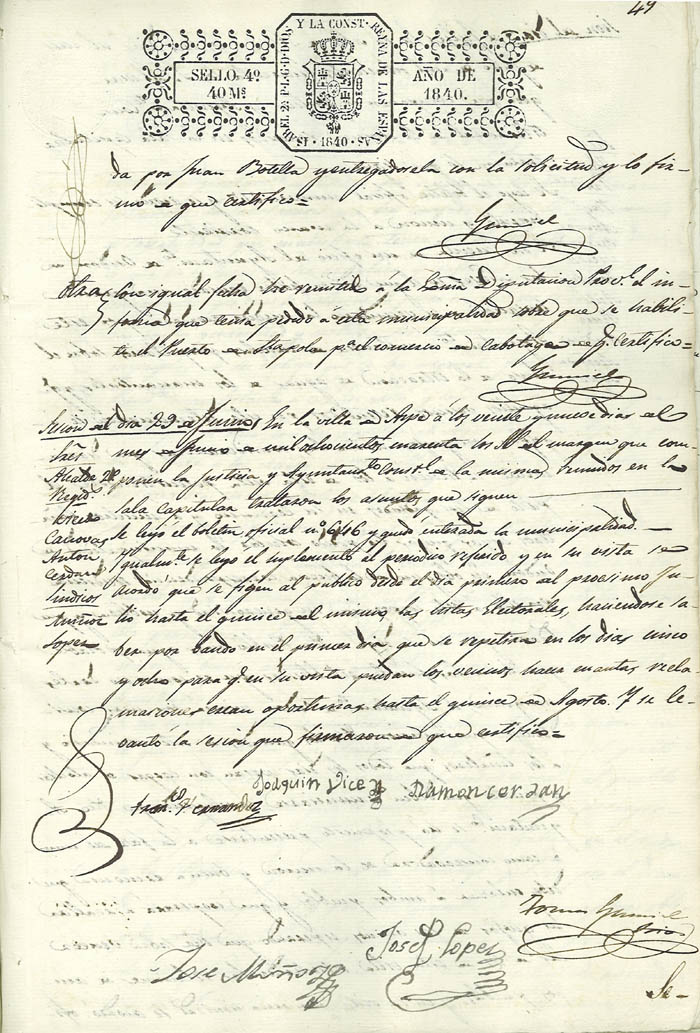 49
ISABEL 2ª P.L.G.D.DIOS Y LA CONST. REYNA DE LAS ESPAÑAS
SELLO 4º
40 Ms
AÑO DE
1840.
· 1840 ·
da por Juan Botella y entregadosela con la solicitud y lo fir-
mo de que certifico=
Gumiel
Otra Con igual fecha he remitido á la Exma Diputacion Provl. el in-
forme que tenia pedido á esta municipalidad sobre que se habili-
te el Puerto de Stapola pa. el comercio de Cabotage de q. Certifico=
Gumiel
Sesion del dia 29 de Junio En la villa de Aspe á los veinte y nueve dias del
Sres mes de Junio de mil ochocientos cuarenta los SS. del margen que com-
Alcalde 2º ponen la Justicia y Ayuntamto. Constl. de la misma, reunidos en la
Regid. sala Capitular trataron los asuntos que siguen
Se leyo el boletin oficial nº 646 y quedó enterada la municipalidad.
Canovas
Anton Igualmte. se leyo el suplemento al periodico referido y en su vista se
Cerdan acordó que se figen al publico desde el dia primero del procsimo Ju-
Sindicos lio hasta el quince del mismo, las listas Electorales, haciendose sa-
Muñoz
Lopez ber por bando en el primer dia, que se repetira en los dias cinco
y ocho para q. en su vista puedan los vecinos hacer cuantas recla-
maciones crean oportunas hasta el quince de Agosto. Y se le-
vantó la sesion que firmaron de que certifico=
Franco. Fernandez
Joaquin Vicen
Ramon cerdan
Tomas Gumiel
José Lopez
Jose Muñoz
Se-